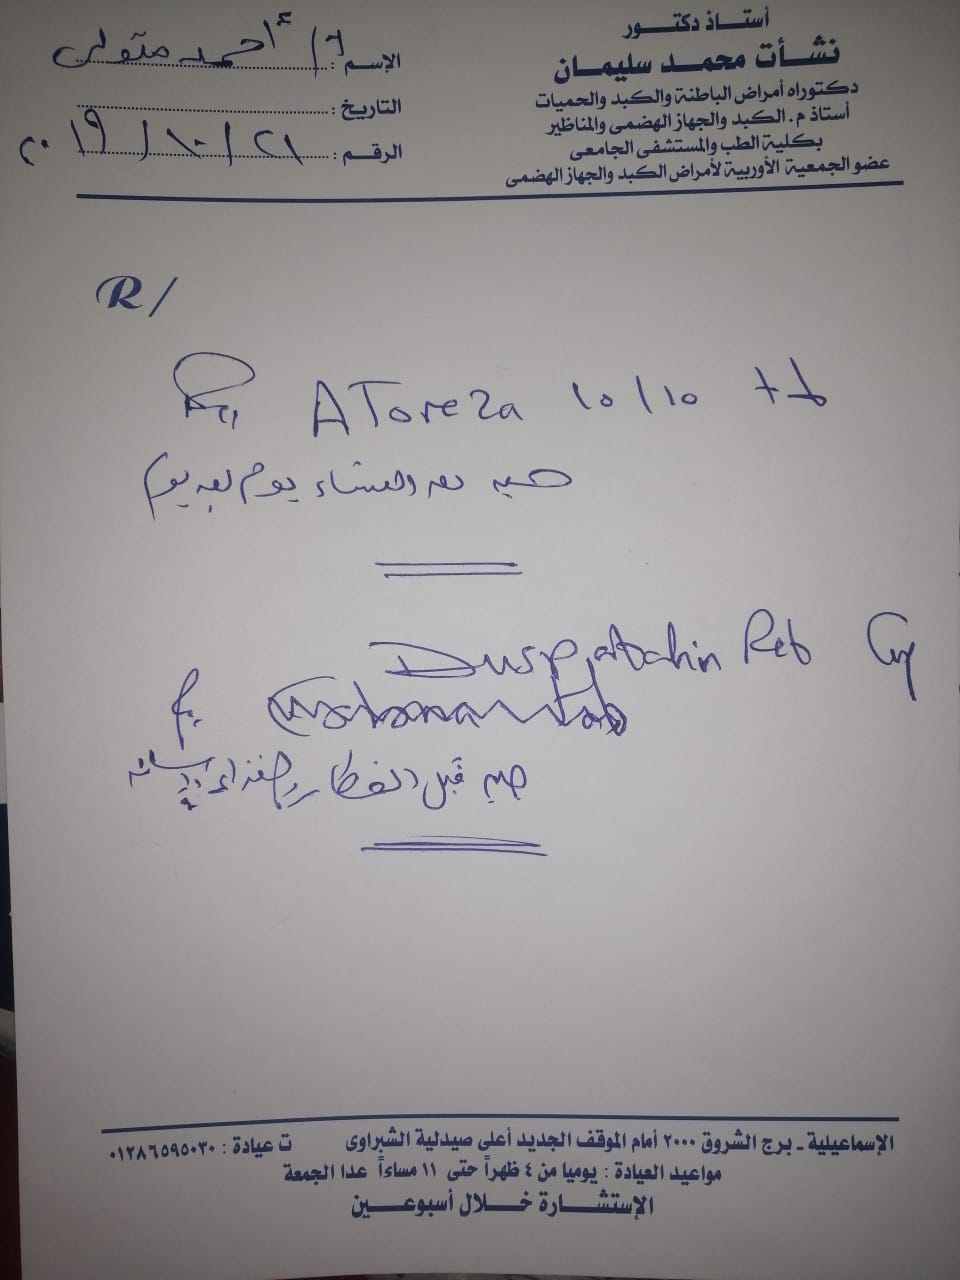 أستاذ دكتور
نشأت محمد سليمان
دكتوراه أمراض الباطنة والكبد والحميات
أستاذ م. الكبد والجهاز الهضمى والمناظير
بكلية الطب والمستشفى الجامعى
عضو الجمعية الأوربية لأمراض الكبد والجهاز الهضمى
الإسم : أ/ أحمد متولى
التاريخ :
الرقم : ٢١ / ١٠ / ٢٠١٩
R/
AToreza ١٠/١٠
بعد العشاء يوم بعد يوم
Duspatalin Ret
قبل الفطار
الإسماعيلية - برج الشروق ٢٠٠٠ أمام الموقف الجديد أعلى صيدلية الشبراوى ت عيادة : ٠١٢٨٦٥٩٥٠٣٠
مواعيد العيادة : يوميا من ٤ ظهراً حتى ١١ مساءاً عدا الجمعة
الإستشارة خلال أسبوعين